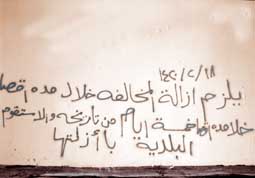 ١٤٣٠/٢/١٨
يلزم ازالة المخالفه خلال مده اقصا
خلا مده اقصا خمسة ايام من تاريخه والا ستقوم
البلدية بأزلتها